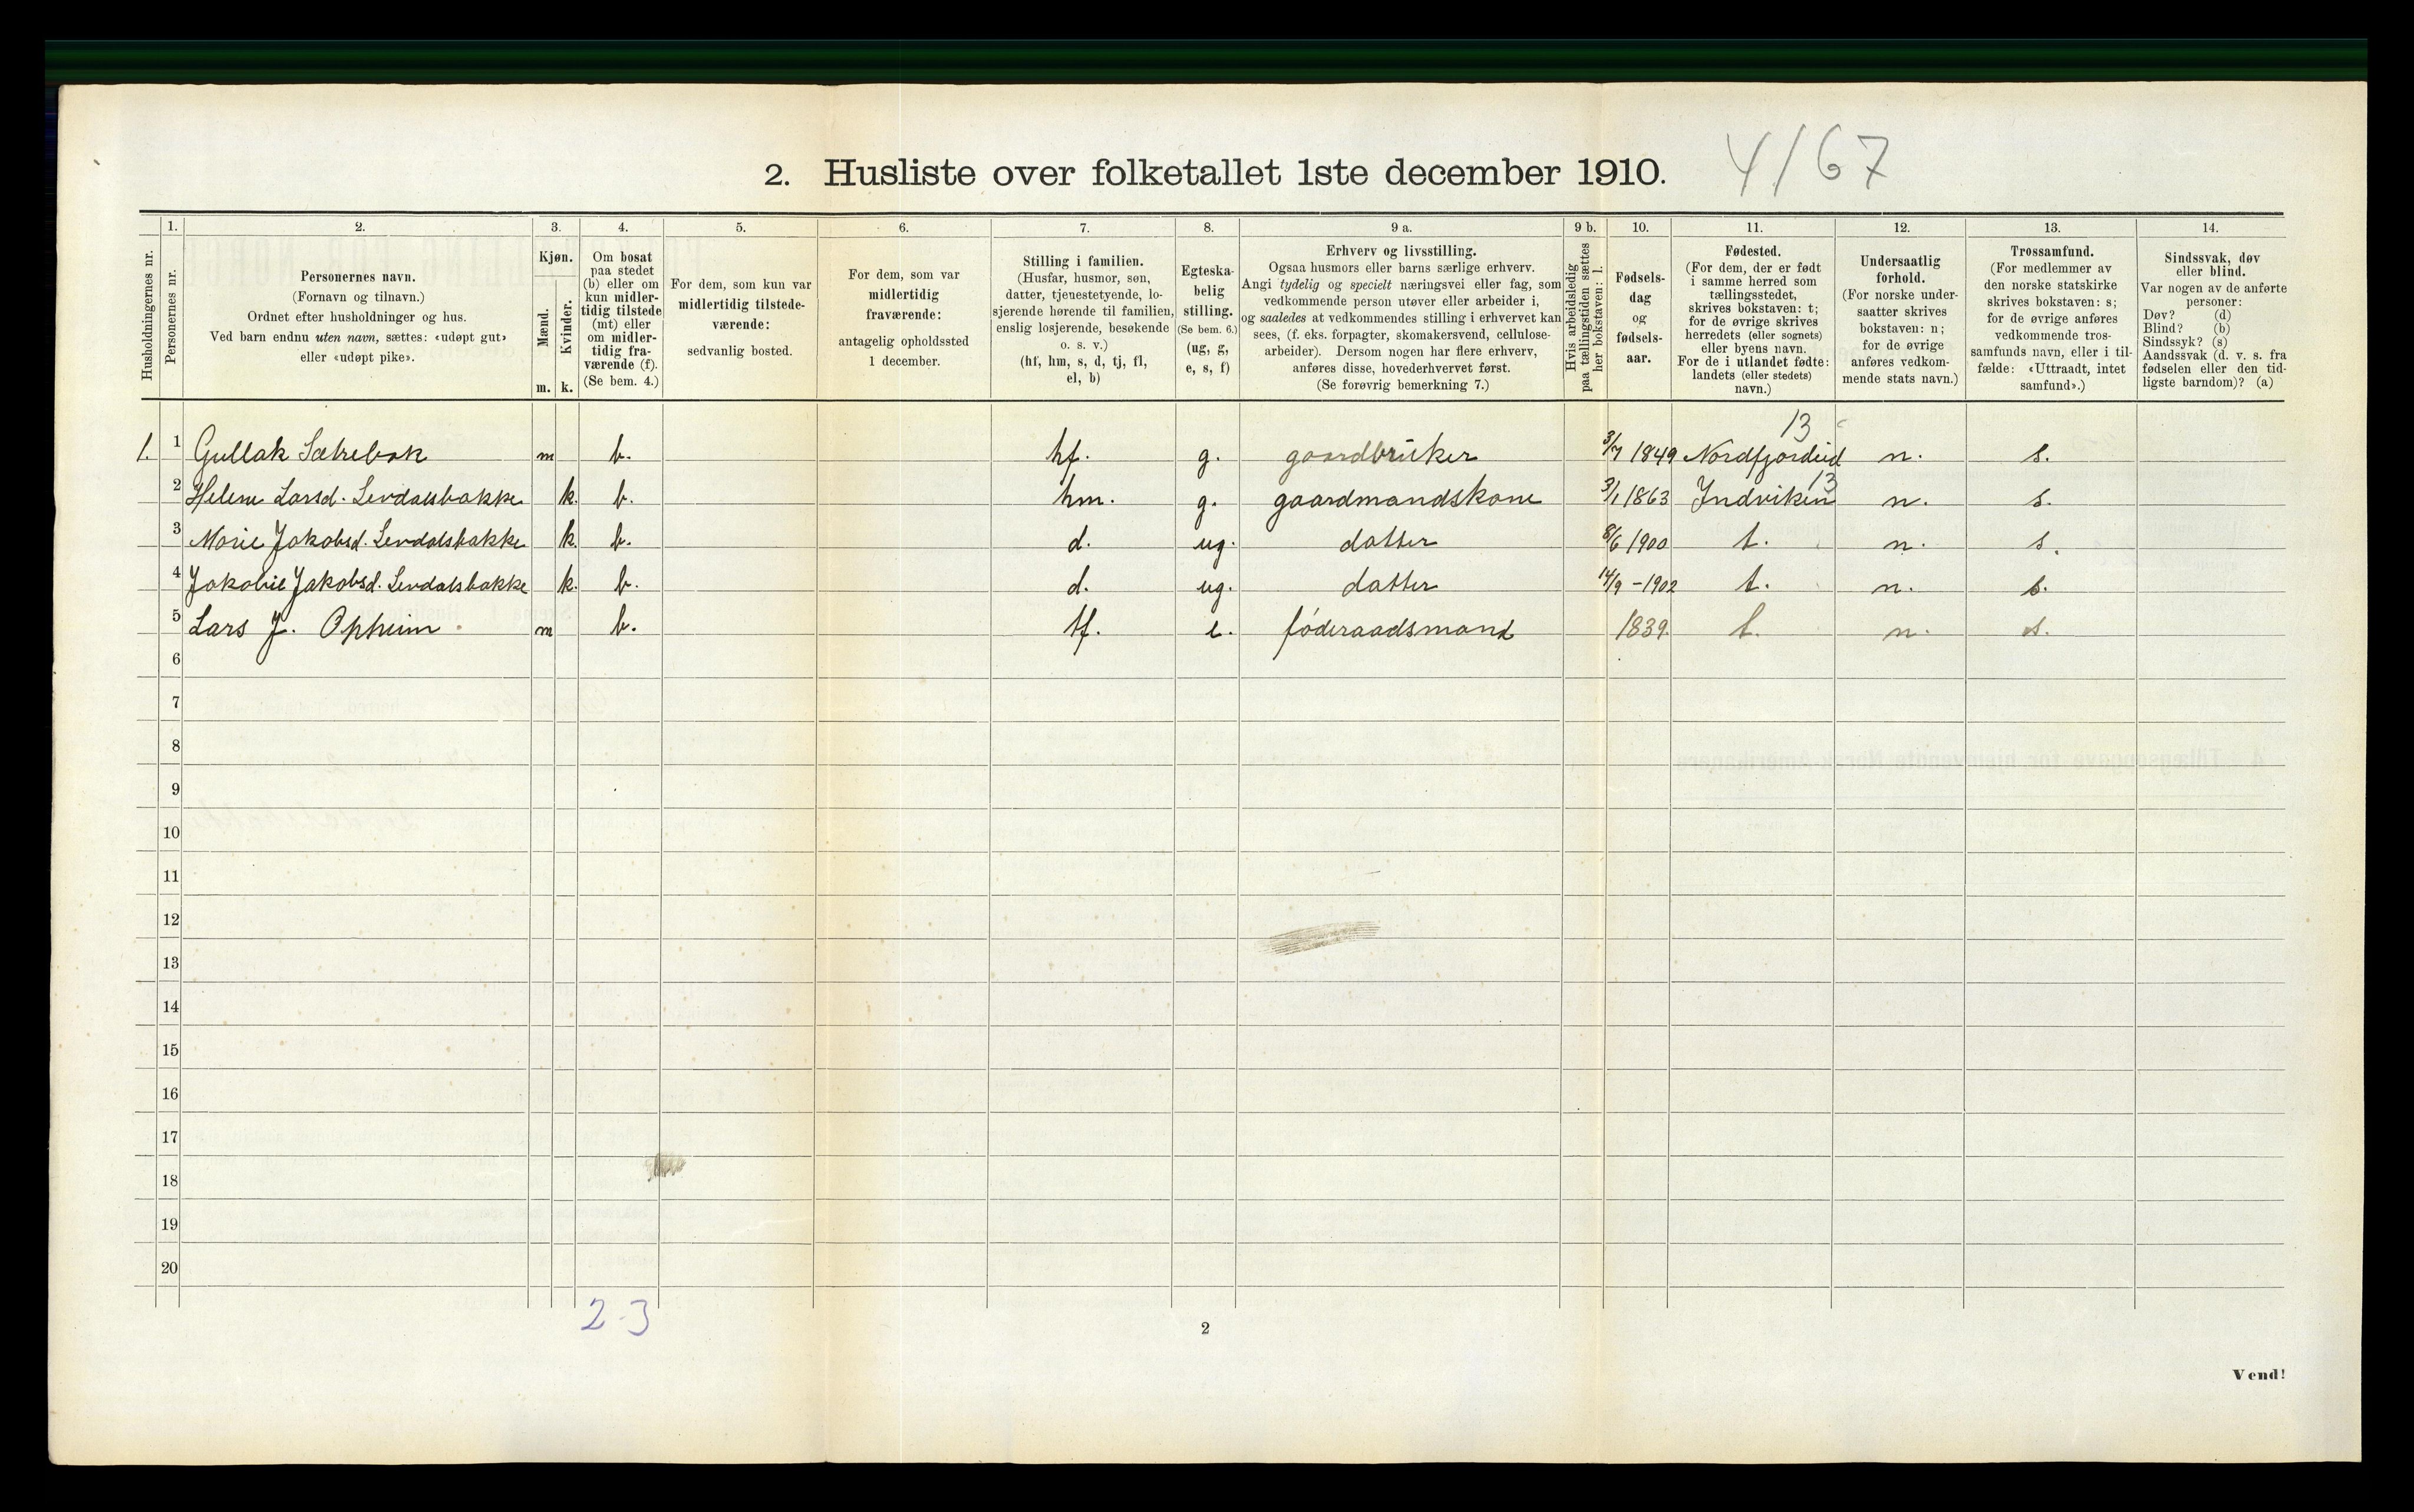 2. Husliste over folketallet 1ste december 1910. 4/67
Husholdningernes nr.
1. Personernes nr.
2. Personernes navn.
(Fornavn og tilnavn.)
Ordnet efter husholdninger og hus.
Ved barn endnu uten navn, sættes: «udøpt gut»
eller «udøpt pike».
3. Kjøn.
Mænd. m.
Kvinder. k.
4. Om bosat
paa stedet
(b) eller om
kun midler-
tidig tilstede
(mt) eller
om midler-
tidig fra-
værende (f).
(Se bem. 4.)
5. For dem, som kun var
midlertidig tilstede-
værende:
sedvanlig bosted.
6. For dem, som var
midlertidig
fraværende:
antagelig opholdssted
1 december.
7. Stilling i familien.
(Husfar, husmor, søn,
datter, tjenestetyende, lo-
sjerende hørende til familien,
enslig losjerende, besøkende
o. s. v.)
(hf, hm, s, d, tj, fl,
el, b)
8. Egteska-
belig
stilling.
(Se bem. 6.)
(ug, g,
e, s, f)
9 a. Erhverv og livsstilling.
Ogsaa husmors eller barns særlige erhverv.
Angi tydelig og specielt næringsvei eller fag, som
vedkommende person utøver eller arbeider i,
og saaledes at vedkommendes stilling i erhvervet kan
sees, (f. eks. forpagter, skomakersvend, cellulose-
arbeider). Dersom nogen har flere erhverv,
anføres disse, hovederhvervet først.
(Se forøvrig bemerkning 7.)
9 b. Hvis arbeidsledig
paa tællingstiden sættes
her bokstaven: l.
10. Fødsels-
dag
og
fødsels-
aar.
11. Fødested.
(For dem, der er født
i samme herred som
tællingsstedet,
skrives bokstaven: t;
for de øvrige skrives
herredets (eller sognets)
eller byens navn.
For de i utlandet fødte:
landets (eller stedets)
navn.)
12. Undersaatlig
forhold.
(For norske under-
saatter skrives
bokstaven: n;
for de øvrige
anføres vedkom-
mende stats navn.)
13. Trossamfund.
(For medlemmer av
den norske statskirke
skrives bokstaven: s;
for de øvrige anføres
vedkommende tros-
samfunds navn, eller i til-
fælde: «Uttraadt, intet
samfund».)
14. Sindssvak, døv
eller blind.
Var nogen av de anførte
personer:
Døv? (d)
Blind? (b)
Sindssyk? (s)
Aandssvak (d. v. s. fra
fødselen eller den tid-
ligste barndom)? (a)
13
1. 1 Gullak Sætrebak m b. hf. g. gaardbruker 3/7 1849 Nordfjordeid n. s.
13
2 Helene Larsd. Levdalsbakke k. b. hm. g. gaardmandskone 3/1 1863 Indviken n. s.
3 Marie Jakobsd. Levdalsbakke k. b. d. ug. datter 8/6 1900 t. n. s.
4 Jakobie Jakobsd. Levdalsbakke k. b. d. ug. datter 14/9 - 1902 t. n. s.
5 Lars J. Opheim m b. e. føderaadsmand 1839. t. n. s.
6
7
8
9
10
11
12
13
14
15
16
17
18
19
20
2-3
2
Vend!